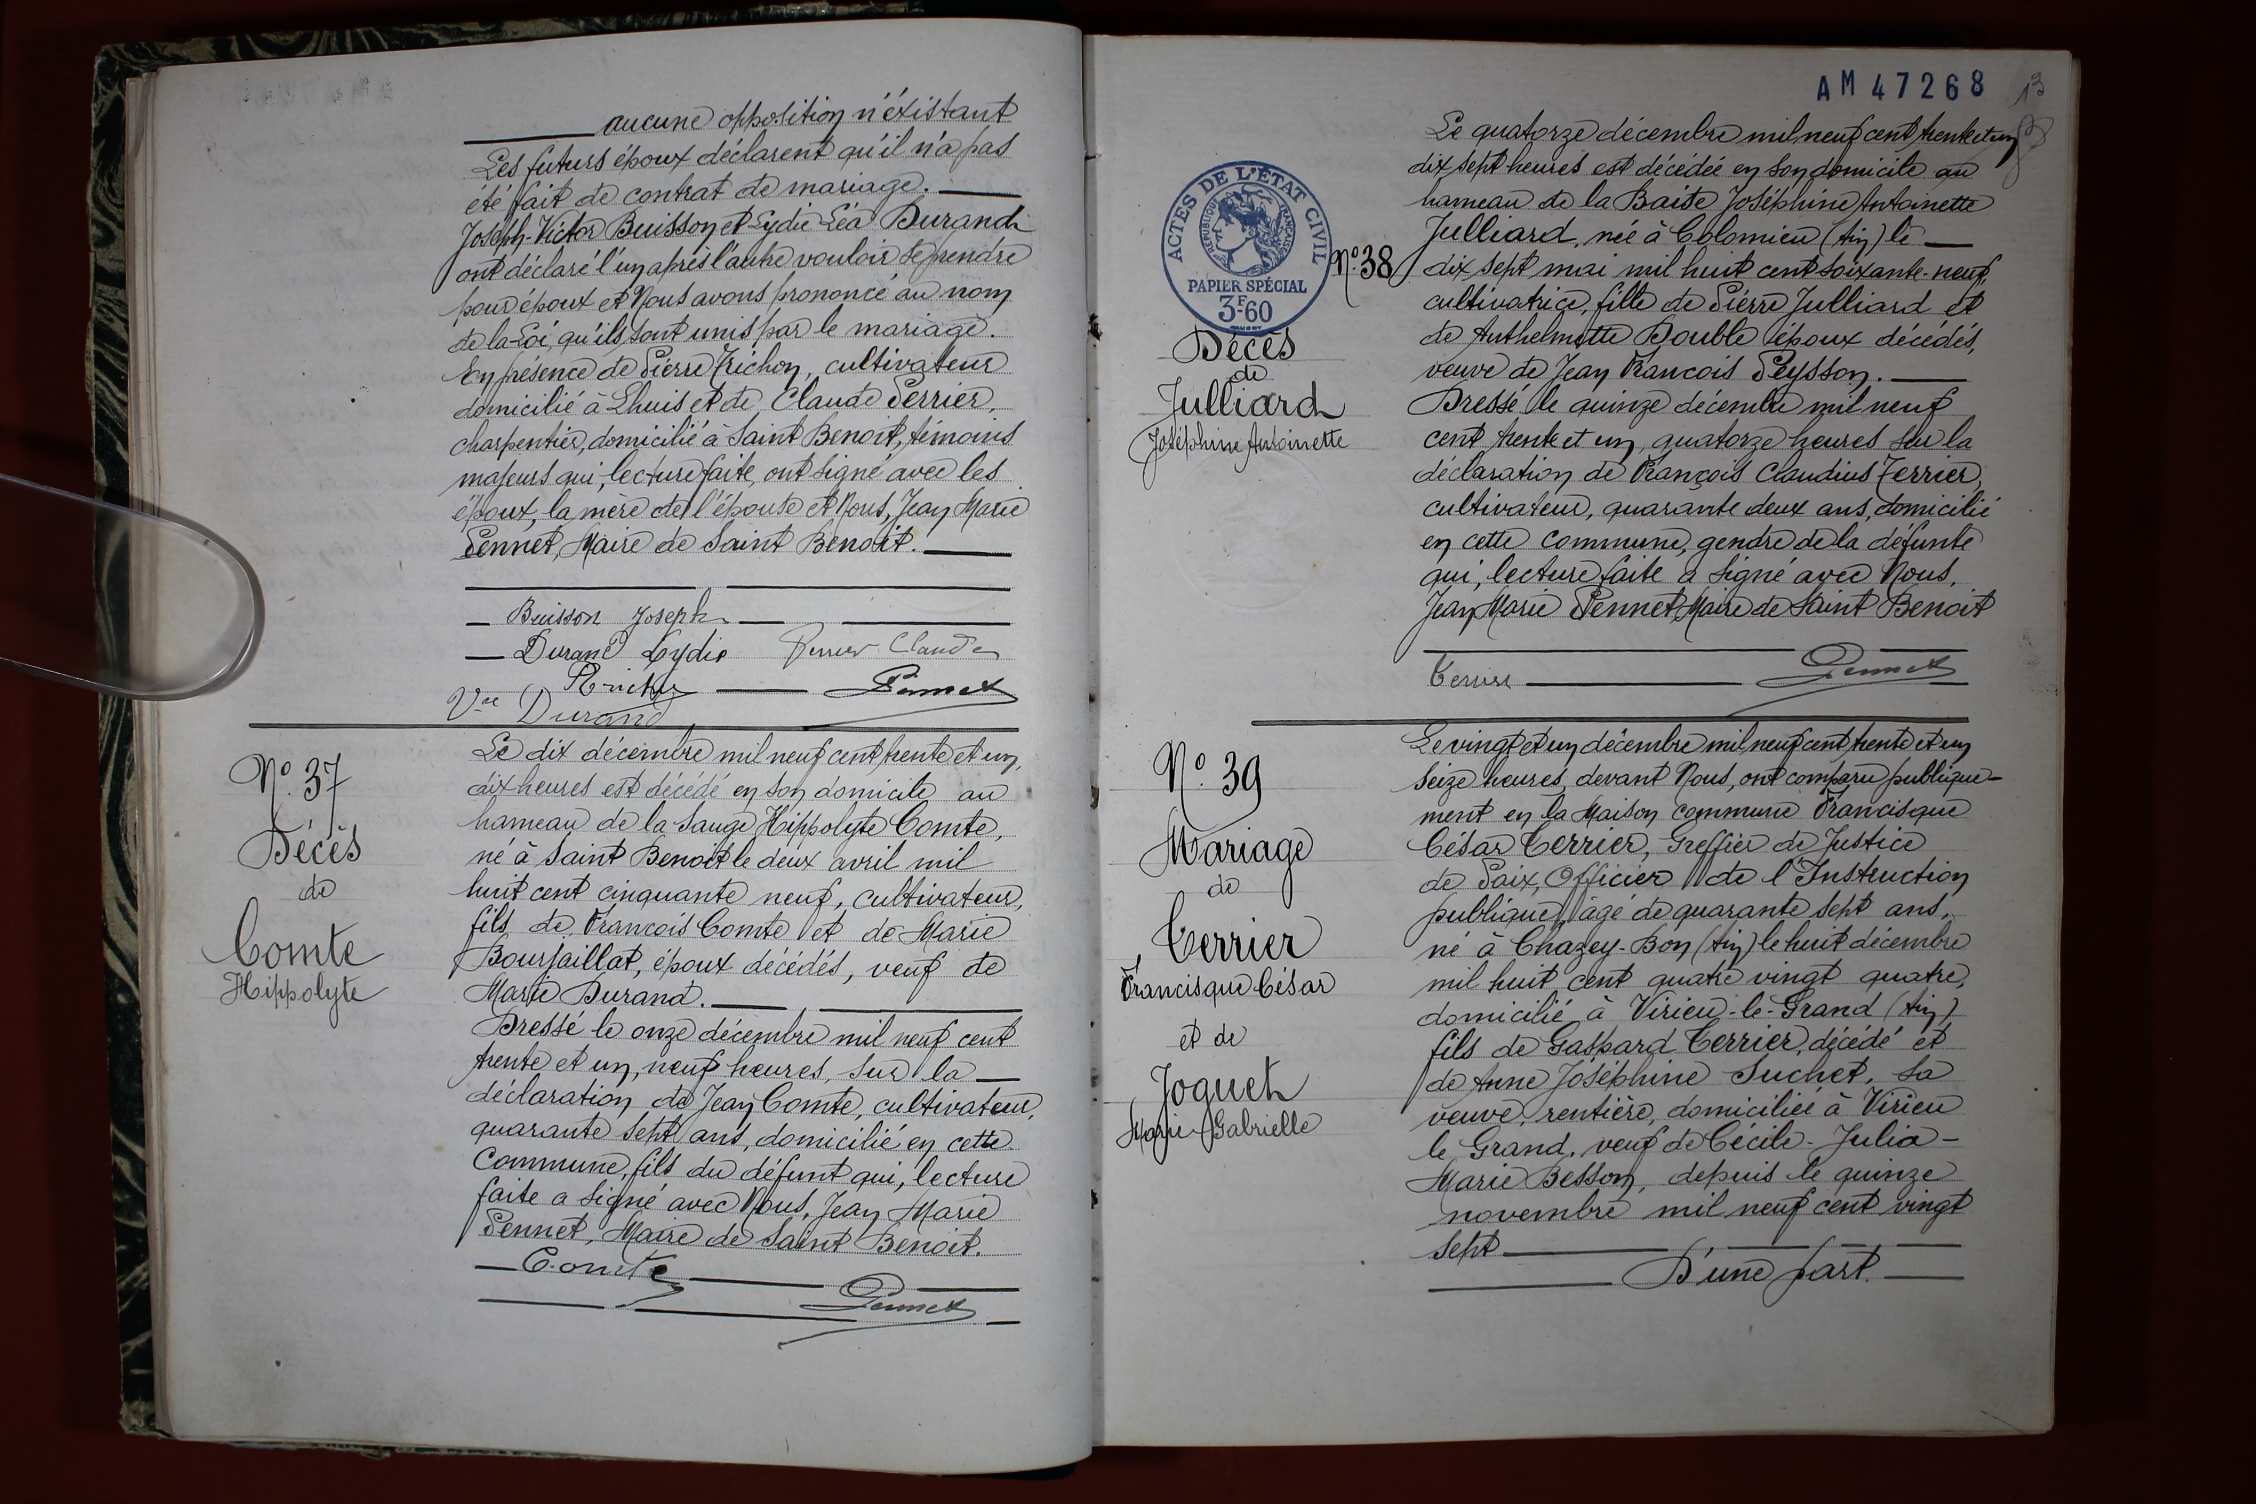 aucune opposition n'éxistant
Les futurs époux déclarent qu'il n'a pas
été fait de contrat de mariage.
Joseph-Victor Buisson et Lydie-Léa Durand
ont déclaré l'un après l'autre vouloir se prendre
pour époux et Nous avons prononcé au nom
de la Loi, qu'ils sont unis par le mariage.
En présence de Pierre Trichon, cultivateur
domicilié à Lhuis et de Claude Perrier,
charpentier, domicilié à Saint Benoit, témoins
majeurs qui, lecture faite, ont signé avec les
époux, la mère de l'épouse et Nous, Jean Marie
Pennet, Maire de Saint Benoit.
Buisson Joseph
Durand Lydie Perrier Claude
Trichon Pennet
Vve Durand
N° 37
Décès
de
Comte
Hippolyte
Le dix décembre mil neuf cent trente et un,
dix heures est décédé en son domicile au
hameau de la Sauge Hippolyte Comte,
né à Saint Benoit le deux avril mil
huit cent cinquante neuf, cultivateur,
fils de François Comte et de Marie
Bourfaillat, époux décédés, veuf de
Marie Durand.
Dressé le onze décembre mil neuf cent
trente et un, neuf heures, sur la
déclaration de Jean Comte, cultivateur,
quarante sept ans, domicilié en cette
commune, fils du défunt qui, lecture
faite a signé avec Nous, Jean Marie
Pennet, Maire de Saint Benoit.
Comte
Pennet
AM 47268
13
ACTES DE L'ÉTAT CIVIL
RÉPUBLIQUE FRANÇAISE
PAPIER SPÉCIAL
3F-60
N° 38
Décès
de
Julliard
Joséphine Antoinette
Le quatorze décembre mil neuf cent trente et un
dix sept heures est décédée en son domicile au
hameau de la Baise Joséphine Antoinette
Julliard, née à Colomieu (Ain) le
dix sept mai mil huit cent soixante-neuf,
cultivatrice, fille de Pierre Julliard et
de Anthelmette Double époux décédés,
veuve de Jean François Peysson.
Dressé le quinze décembre mil neuf
cent trente et un, quatorze heures sur la
déclaration de François Claudius Terrier,
cultivateur, quarante deux ans, domicilié
en cette commune, gendre de la défunte
qui, lecture faite a signé avec Nous,
Jean Marie Pennet, Maire de Saint Benoit
Terrier Pennet
N° 39
Mariage
de
Terrier
Francisque César
et de
Joguet
Marie-Gabrielle
Le vingt et un décembre mil neuf cent trente et un
seize heures, devant Nous, ont comparu publique-
ment en la Maison commune Francisque
César Terrier, Greffier de Justice
de Paix, Officier de l'Instruction
publique, âgé de quarante sept ans,
né à Chazey-Bon (Ain) le huit décembre
mil huit cent quatre vingt quatre,
domicilié à Virieu-le-Grand (Ain)
fils de Gaspard Terrier, décédé et
de Anne Joséphine Suchet, sa
veuve, rentière, domiciliée à Virieu
le Grand, veuf de Cécile-Julia-
Marie Besson, depuis le quinze
novembre mil neuf cent vingt
sept
D'une part.